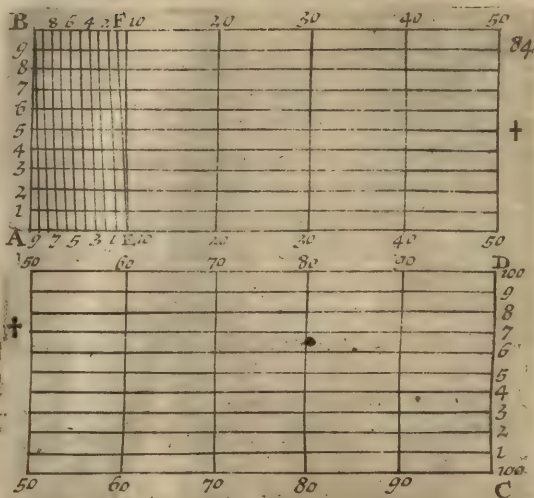 B 8 6 4 2 F 10 20 30 40 50
84
9
8
7
6
5
4
3
2
1
A 9 7 5 3 1 E 10 20 30 40 50
50 60 70 80 90 D 100
9
8
7
6
5
4
3
2
1
50 60 70 80 90 C 100